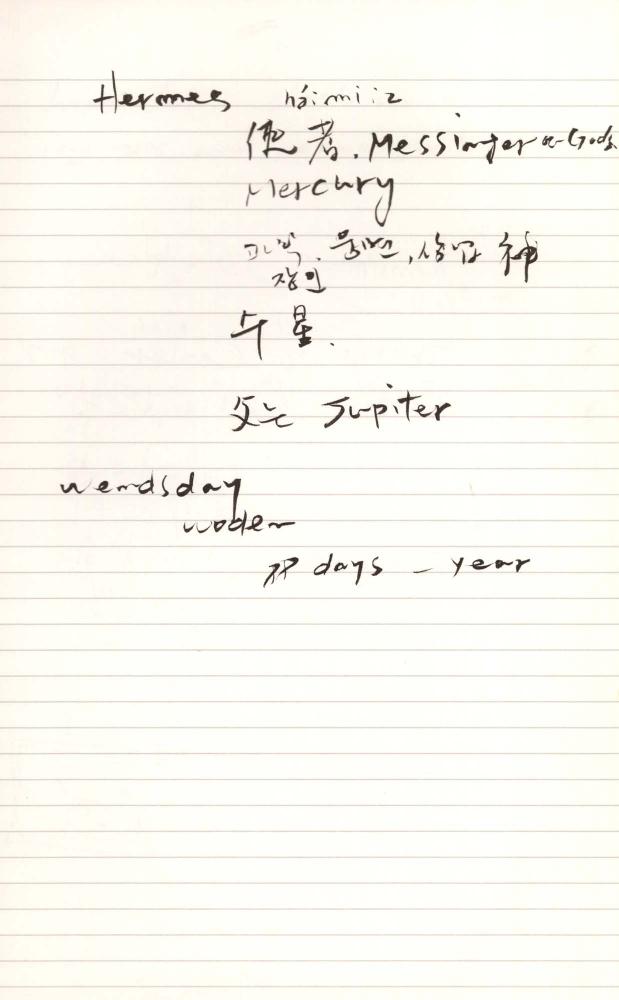 Hermes háːmiːz
使者. Messinger of Gods.
Mercury
과학. 웅변, 상업 神
장인
수星.
父는 Jupiter
wendsday
woden
88 days - year